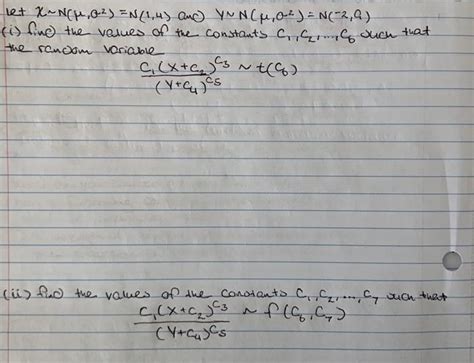 Let X~N(μ,σ²)=N(1,4) and Y~N(μ,σ²)=N(-2,9)
(i) find the values of the constants C₁,C₂,...,C₆ such that
the random variable
C₁(X+C₂)^C₃ ~ t(C₆)
(Y+C₄)^C₅
(ii) find the values of the constants C₁,C₂,...,C₇ such that
C₁(X+C₂)^C₃ ~ f(C₆,C₇)
(Y+C₄)^C₅